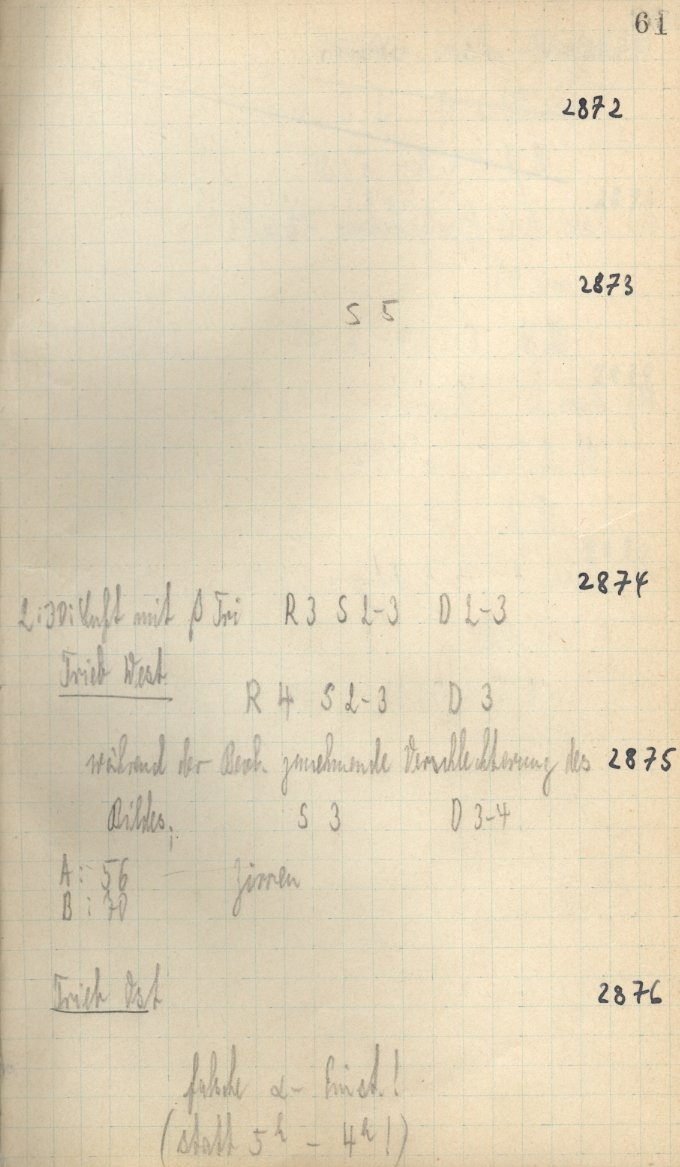 61
2872
2873
S 5
2874
2:30: Luft mit β Tri R 3 S 2-3 D 2-3
Trieb West
R 4 S 2-3 D 3
während der Beob. zunehmende Verschlechterung des 2875
Bildes; S 3 D 3-4
A: 56 Zirren
B: 70
Trieb Ost 2876
falsche α- Einst.!
(statt 5h - 4h!)